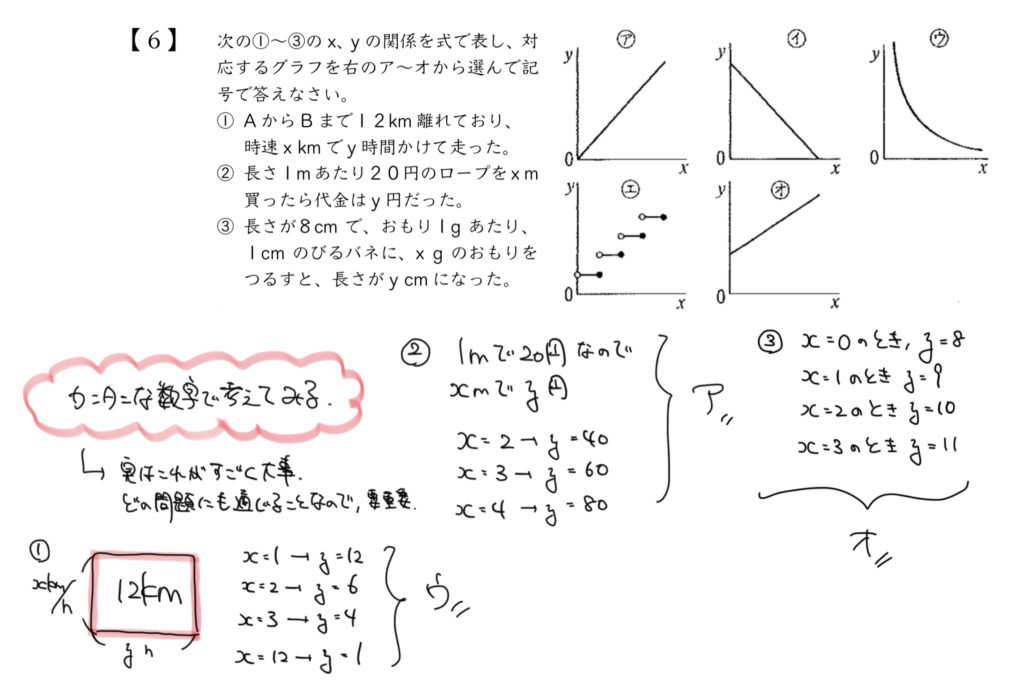 【6】
次の①〜③のx、yの関係を式で表し、対
応するグラフを右のア〜オから選んで記
号で答えなさい。
① AからBまで12km離れており、
時速x kmでy時間かけて走った。
② 長さ1mあたり20円のロープをx m
買ったら代金はy円だった。
③ 長さが8cmで、おもり1gあたり、
1cmのびるバネに、x gのおもりを
つるすと、長さがy cmになった。
㋐
y
0
x
㋑
y
0
x
㋒
y
0
x
㋓
y
0
x
㋔
y
0
x
カンタンな数字で考えてみる.
↳ 実はこれがすごく大事.
どの問題にも通じることなので, 重要.
①
xkm/h
12km
y h
x=1→y=12
x=2→y=6
x=3→y=4
x=12→y=1
ウ
② 1mで20円なので
xmでy円
x=2→y=40
x=3→y=60
x=4→y=80
ア
③ x=0のとき, y=8
x=1のとき y=9
x=2のとき y=10
x=3のとき y=11
オ